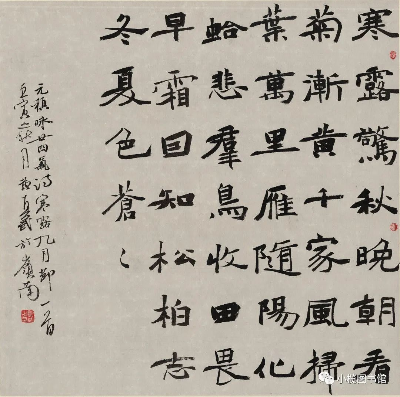 寒露驚秋晚朝看
菊漸黃千家風掃
葉萬里雁隨陽化
蛤悲羣鳥收田畏
早霜囙知松柏志
冬夏色蒼〻
元稹咏廿四氣詩寒露九月節一首
壬寅之秋月於嶺南
小榄图书馆